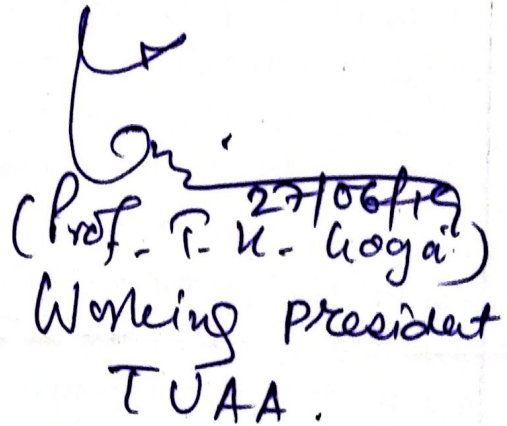 27/06/19
(Prof. T. K. Goga)
Working president
TUAA.